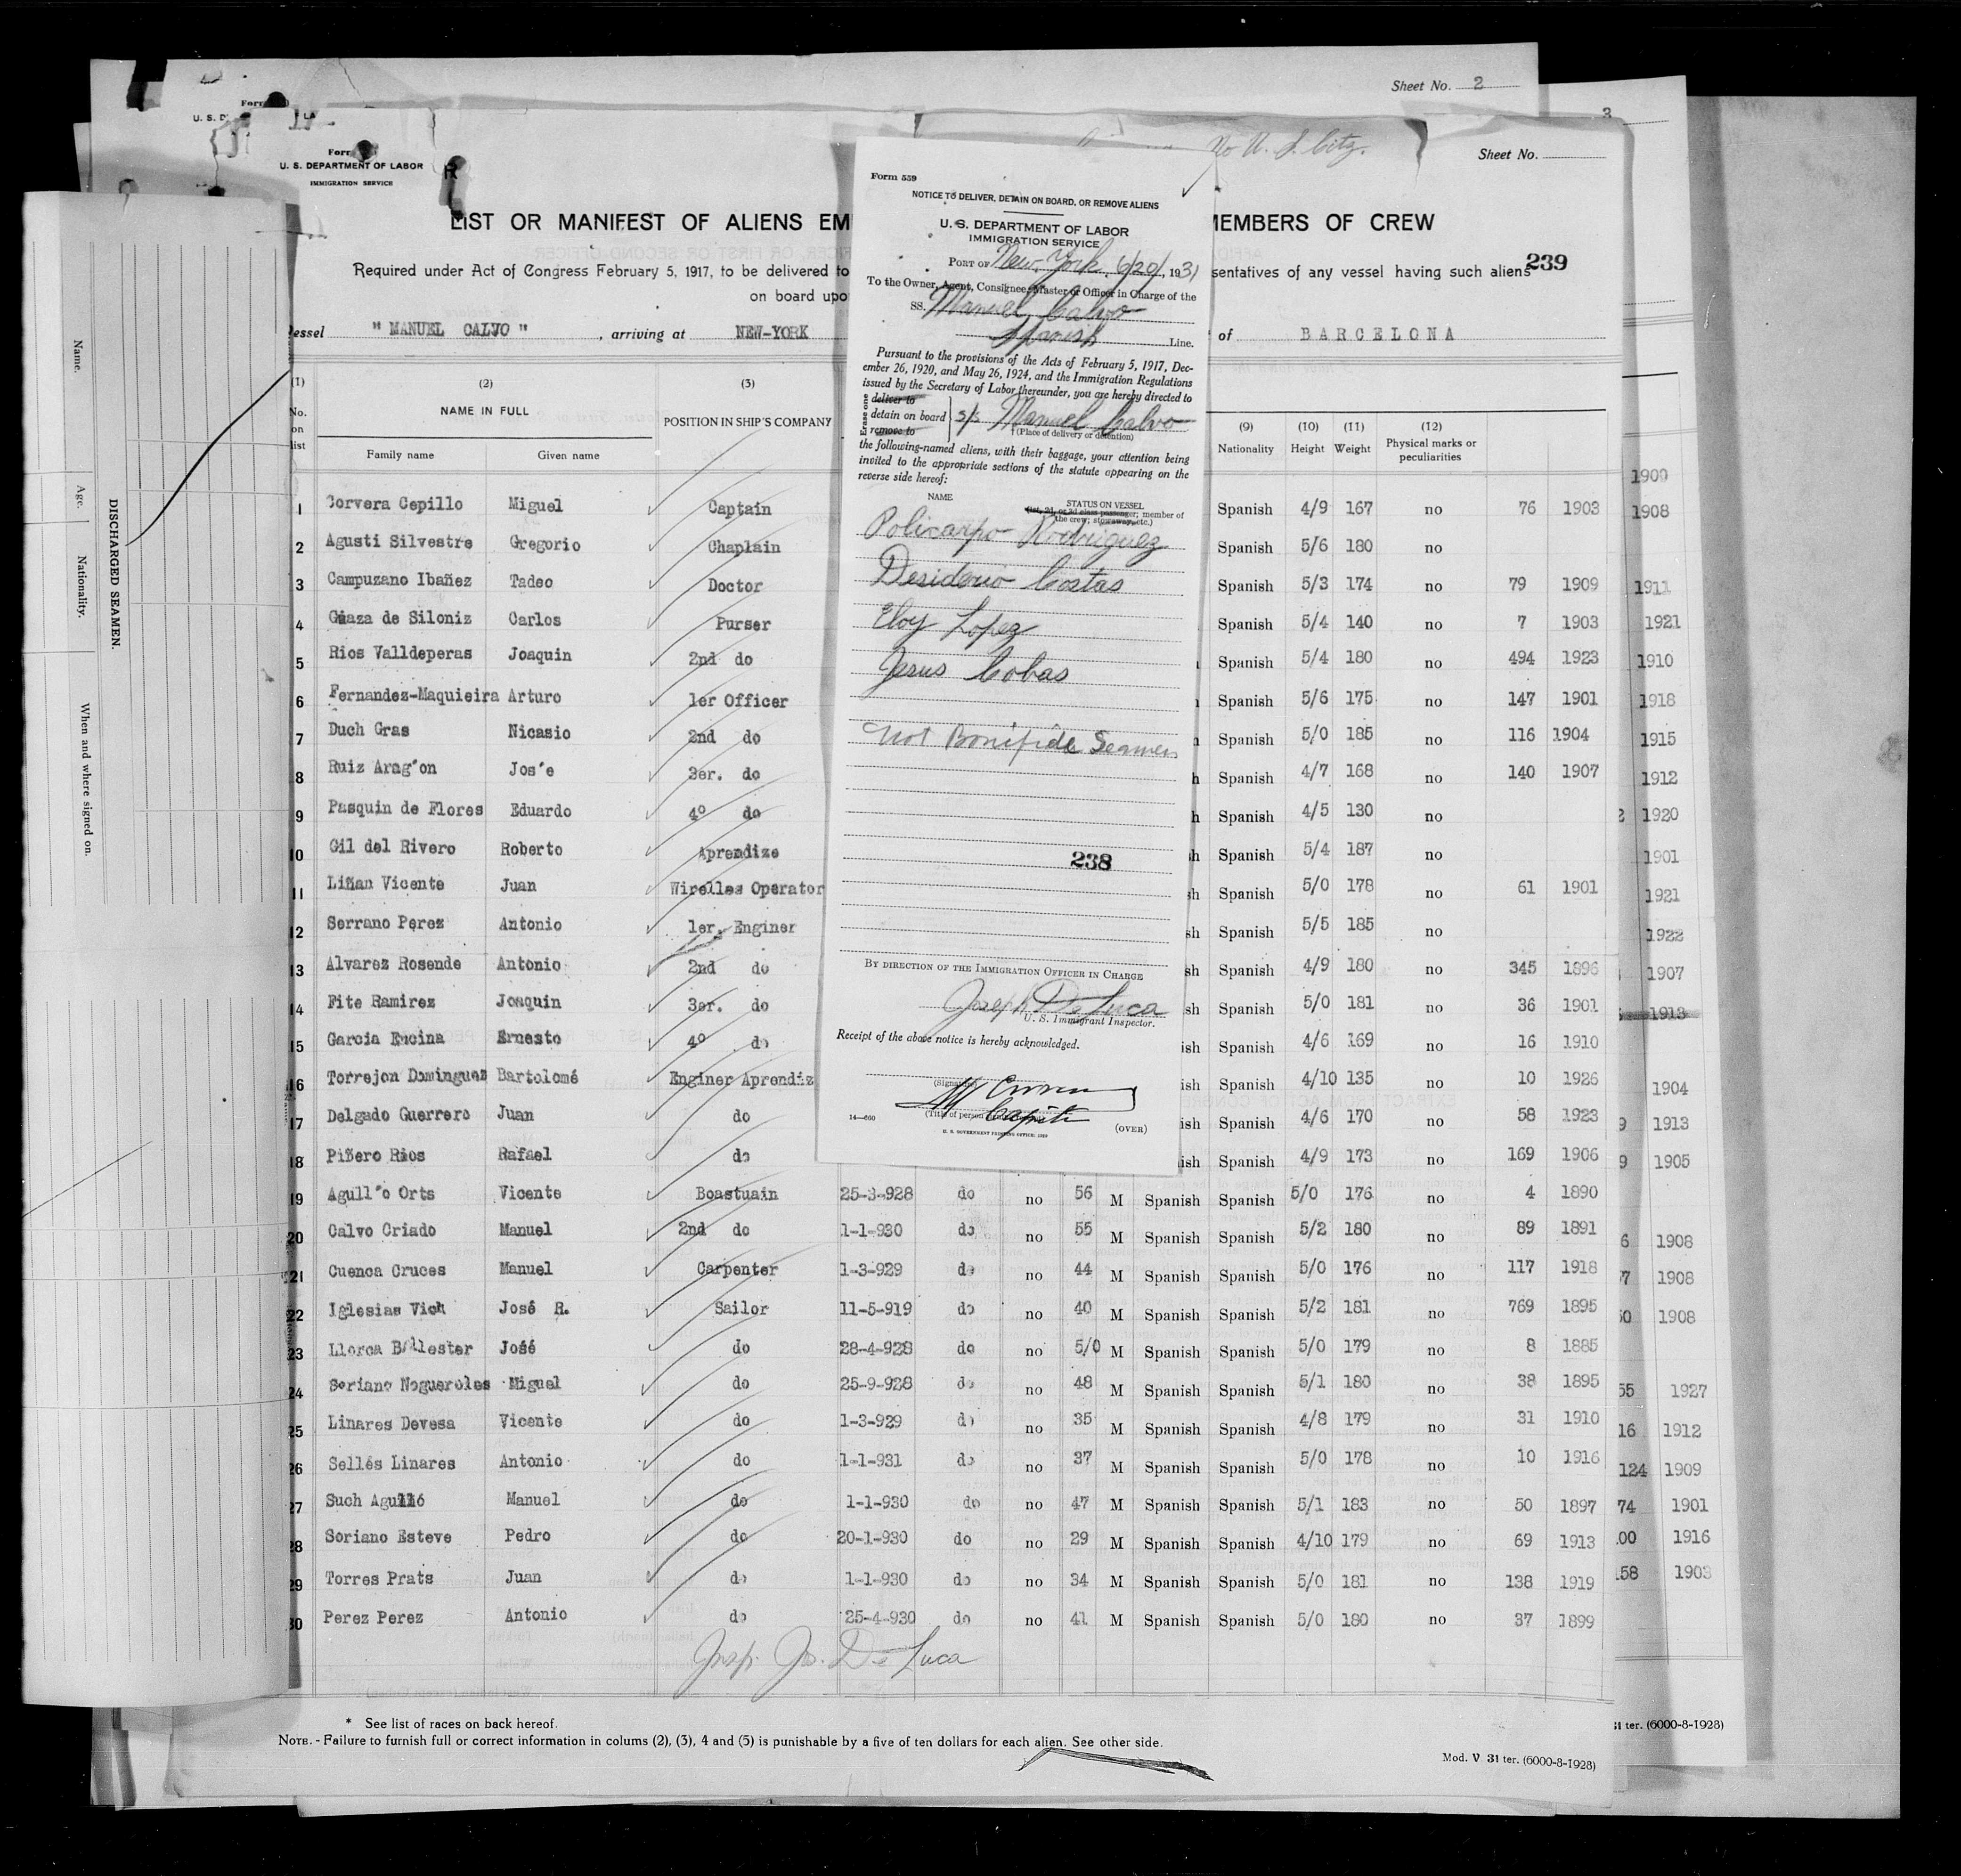 Sheet No. 2
3
No U. S. Citz.
Sheet No.
U. S. DEPARTMENT OF LABOR
IMMIGRATION SERVICE
LIST OR MANIFEST OF ALIENS EM
MEMBERS OF CREW
239
Required under Act of Congress February 5, 1917, to be delivered to
sentatives of any vessel having such aliens
on board upo
Vessel " MANUEL CALVO " , arriving at NEW-YORK
of BARCELONA
Form 559
NOTICE TO DELIVER, DETAIN ON BOARD, OR REMOVE ALIENS
U. S. DEPARTMENT OF LABOR
IMMIGRATION SERVICE
PORT OF New York, 6/20/, 1931
To the Owner, Agent, Consignee, Master or Officer in Charge of the
SS. Manuel Calvo
Spanish Line.
Pursuant to the provisions of the Acts of February 5, 1917, Dec-
ember 26, 1920, and May 26, 1924, and the Immigration Regulations
issued by the Secretary of Labor thereunder, you are hereby directed to
Erase one
deliver to
detain on board s/s Manuel Calvo
remove to
†(Place of delivery or detention)
the following-named aliens, with their baggage, your attention being
invited to the appropriate sections of the statute appearing on the
reverse side hereof:
NAME
STATUS ON VESSEL
(1st, 2d, or 3d class passenger; member of
the crew; stowaway, etc.)
Policarpo Rodriguez
Desiderio Costas
Eloy Lopez
Jesus Cobas
Not Bonifide Seamen
238
BY DIRECTION OF THE IMMIGRATION OFFICER IN CHARGE
Joseph De Luca
U. S. Immigrant Inspector.
Receipt of the above notice is hereby acknowledged.
(Signature)
(Title of person
14—660
U. S. GOVERNMENT PRINTING OFFICE: 1929
(OVER)
DISCHARGED SEAMEN.
Name.
Age.
Nationality.
When and where signed on.
(1) (2) (3) (9) (10) (11) (12)
No. on list
NAME IN FULL
POSITION IN SHIP'S COMPANY
Nationality Height Weight Physical marks or peculiarities
Family name Given name
1 Corvera Cepillo Miguel Captain Spanish 4/9 167 no 76 1903
2 Agusti Silvestre Gregorio Chaplain Spanish 5/6 180 no
3 Campuzano Ibañez Tadeo Doctor Spanish 5/3 174 no 79 1909
4 Gaaza de Siloniz Carlos Purser Spanish 5/4 140 no 7 1903
5 Rios Valldeperas Joaquin 2nd do Spanish 5/4 180 no 494 1923
6 Fernandez-Maquieira Arturo 1er Officer Spanish 5/6 175 no 147 1901
7 Duch Gras Nicasio 2nd do Spanish 5/0 185 no 116 1904
8 Ruiz Arag´on Jos´e 3er. do Spanish 4/7 168 no 140 1907
9 Pasquin de Flores Eduardo 4º do Spanish 4/5 130 no
10 Gil del Rivero Roberto Aprendize Spanish 5/4 187 no
11 Liñan Vicente Juan Wirelles Operator Spanish 5/0 178 no 61 1901
12 Serrano Perez Antonio 1er. Enginer Spanish 5/5 185 no
13 Alvarez Rosende Antonio 2nd do Spanish 4/9 180 no 345 1896
14 Fite Ramirez Joaquin 3er. do Spanish 5/0 181 no 36 1901
15 Garcia Encina Ernesto 4º do Spanish 4/6 169 no 16 1910
16 Torrejon Dominguez Bartolomé Enginer Aprendiz Spanish 4/10 135 no 10 1926
17 Delgado Guerrero Juan do Spanish 4/6 170 no 58 1923
18 Piñero Rios Rafael do Spanish 4/9 173 no 169 1906
19 Agull´o Orts Vicente Boastuain 25-3-928 do no 56 M Spanish Spanish 5/0 176 no 4 1890
20 Calvo Criado Manuel 2nd do 1-1-930 do no 55 M Spanish Spanish 5/2 180 no 89 1891
21 Cuenca Cruces Manuel Carpenter 1-3-929 do no 44 M Spanish Spanish 5/0 176 no 117 1918
22 Iglesias Vich José R. Sailor 11-5-919 do no 40 M Spanish Spanish 5/2 181 no 769 1895
23 Llorca Ballester José do 28-4-928 do no 5/0 M Spanish Spanish 5/0 179 no 8 1885
24 Soriano Nogueroles Miguel do 25-9-928 do no 48 M Spanish Spanish 5/1 180 no 38 1895
25 Linares Devesa Vicente do 1-3-929 do no 35 M Spanish Spanish 4/8 179 no 31 1910
26 Sellés Linares Antonio do 1-1-931 do no 37 M Spanish Spanish 5/0 178 no 10 1916
27 Such Agulló Manuel do 1-1-930 do no 47 M Spanish Spanish 5/1 183 no 50 1897
28 Soriano Esteve Pedro do 20-1-930 do no 29 M Spanish Spanish 4/10 179 no 69 1913
29 Torres Prats Juan do 1-1-930 do no 34 M Spanish Spanish 5/0 181 no 138 1919
30 Perez Perez Antonio do 25-4-930 do no 41 M Spanish Spanish 5/0 180 no 37 1899
Insp. Jo. De Luca
1909
1908
1911
1921
1910
1918
1915
1912
1920
1901
1921
1922
1907
1913
1904
1913
1905
1908
1908
1908
1927
16 1912
124 1909
74 1901
1916
1903
* See list of races on back hereof.
NOTE. - Failure to furnish full or correct information in colums (2), (3), 4 and (5) is punishable by a five of ten dollars for each alien. See other side.
Mod. V 31 ter. (6000-8-1928)
31 ter. (6000-8-1928)